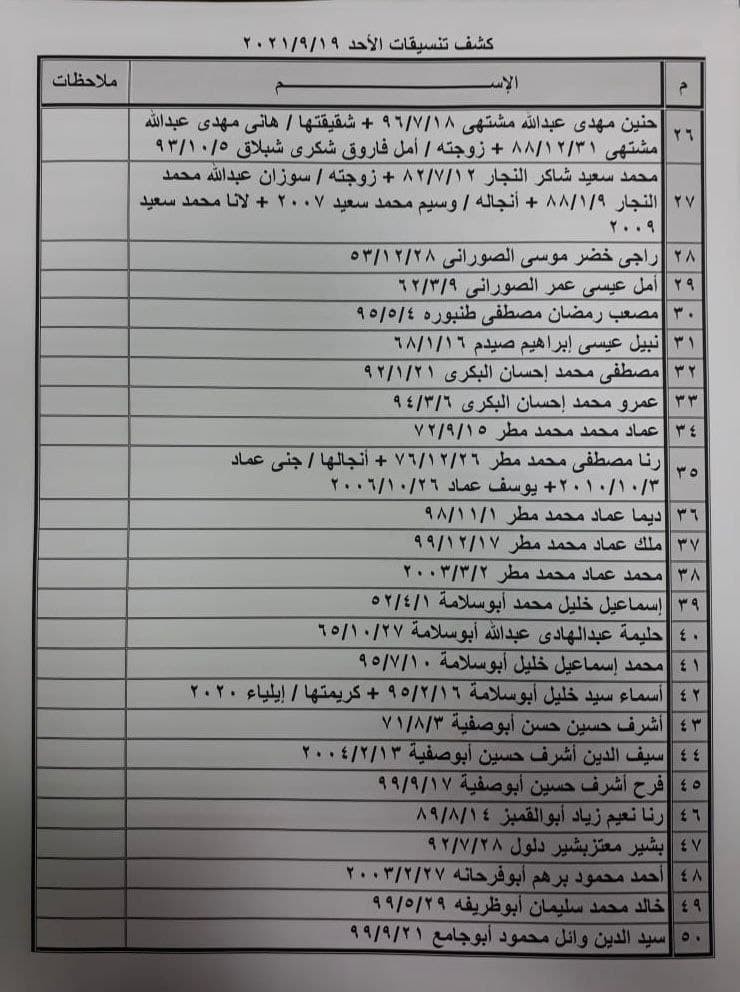 كشف تنسيقات الأحد ٢٠٢١/٩/١٩
م الإســـــــــم ملاحظات
٢٦ حنين مهدى عبدالله مشتهى ٩٦/٧/١٨ + شقيقتها / هانى مهدى عبدالله
مشتهى ٨٨/١٢/٣١ + زوجته / أمل فاروق شكرى شبلاق ٩٣/١٠/٥
٢٧ محمد سعيد شاكر النجار ٨٢/٧/١٢ + زوجته / سوزان عبدالله محمد
النجار ٨٨/١/٩ + أنجاله / وسيم محمد سعيد ٢٠٠٧ + لانا محمد سعيد
٢٠٠٩
٢٨ راجى خضر موسى الصورانى ٥٣/١٢/٢٨
٢٩ أمل عيسى عمر الصورانى ٦٢/٣/٩
٣٠ مصعب رمضان مصطفى طنبوره ٩٥/٥/٤
٣١ نبيل عيسى إبراهيم صيدم ٦٨/١/١٦
٣٢ مصطفى محمد إحسان البكرى ٩٢/١/٢١
٣٣ عمرو محمد إحسان البكرى ٩٤/٣/٦
٣٤ عماد محمد محمد مطر ٧٢/٩/١٥
٣٥ رنا مصطفى محمد مطر ٧٦/١٢/٢٦ + أنجالها / جنى عماد
٢٠١٠/١٠/٣+ يوسف عماد ٢٠٠٦/١٠/٢٦
٣٦ ديما عماد محمد مطر ٩٨/١١/١
٣٧ ملك عماد محمد مطر ٩٩/١٢/١٧
٣٨ محمد عماد محمد مطر ٢٠٠٣/٣/٢
٣٩ إسماعيل خليل محمد أبوسلامة ٥٢/٤/١
٤٠ حليمة عبدالهادى عبدالله أبوسلامة ٦٥/١٠/٢٧
٤١ محمد إسماعيل خليل أبوسلامة ٩٥/٧/١٠
٤٢ أسماء سيد خليل أبوسلامة ٩٥/٢/١٦ + كريمتها / إيلياء ٢٠٢٠
٤٣ أشرف حسين حسن أبوصفية ٧١/٨/٣
٤٤ سيف الدين أشرف حسين أبوصفية ٢٠٠٤/٢/١٣
٤٥ فرح أشرف حسين أبوصفية ٩٩/٩/١٧
٤٦ رنا نعيم زياد أبوالقمبز ٨٩/٨/١٤
٤٧ بشير معتزبشير دلول ٩٢/٧/٢٨
٤٨ أحمد محمود برهم أبوفرحانه ٢٠٠٣/٢/٢٧
٤٩ خالد محمد سليمان أبوظريفه ٩٩/٥/٢٩
٥٠ سيد الدين وائل محمود أبوجامع ٩٩/٩/٢١